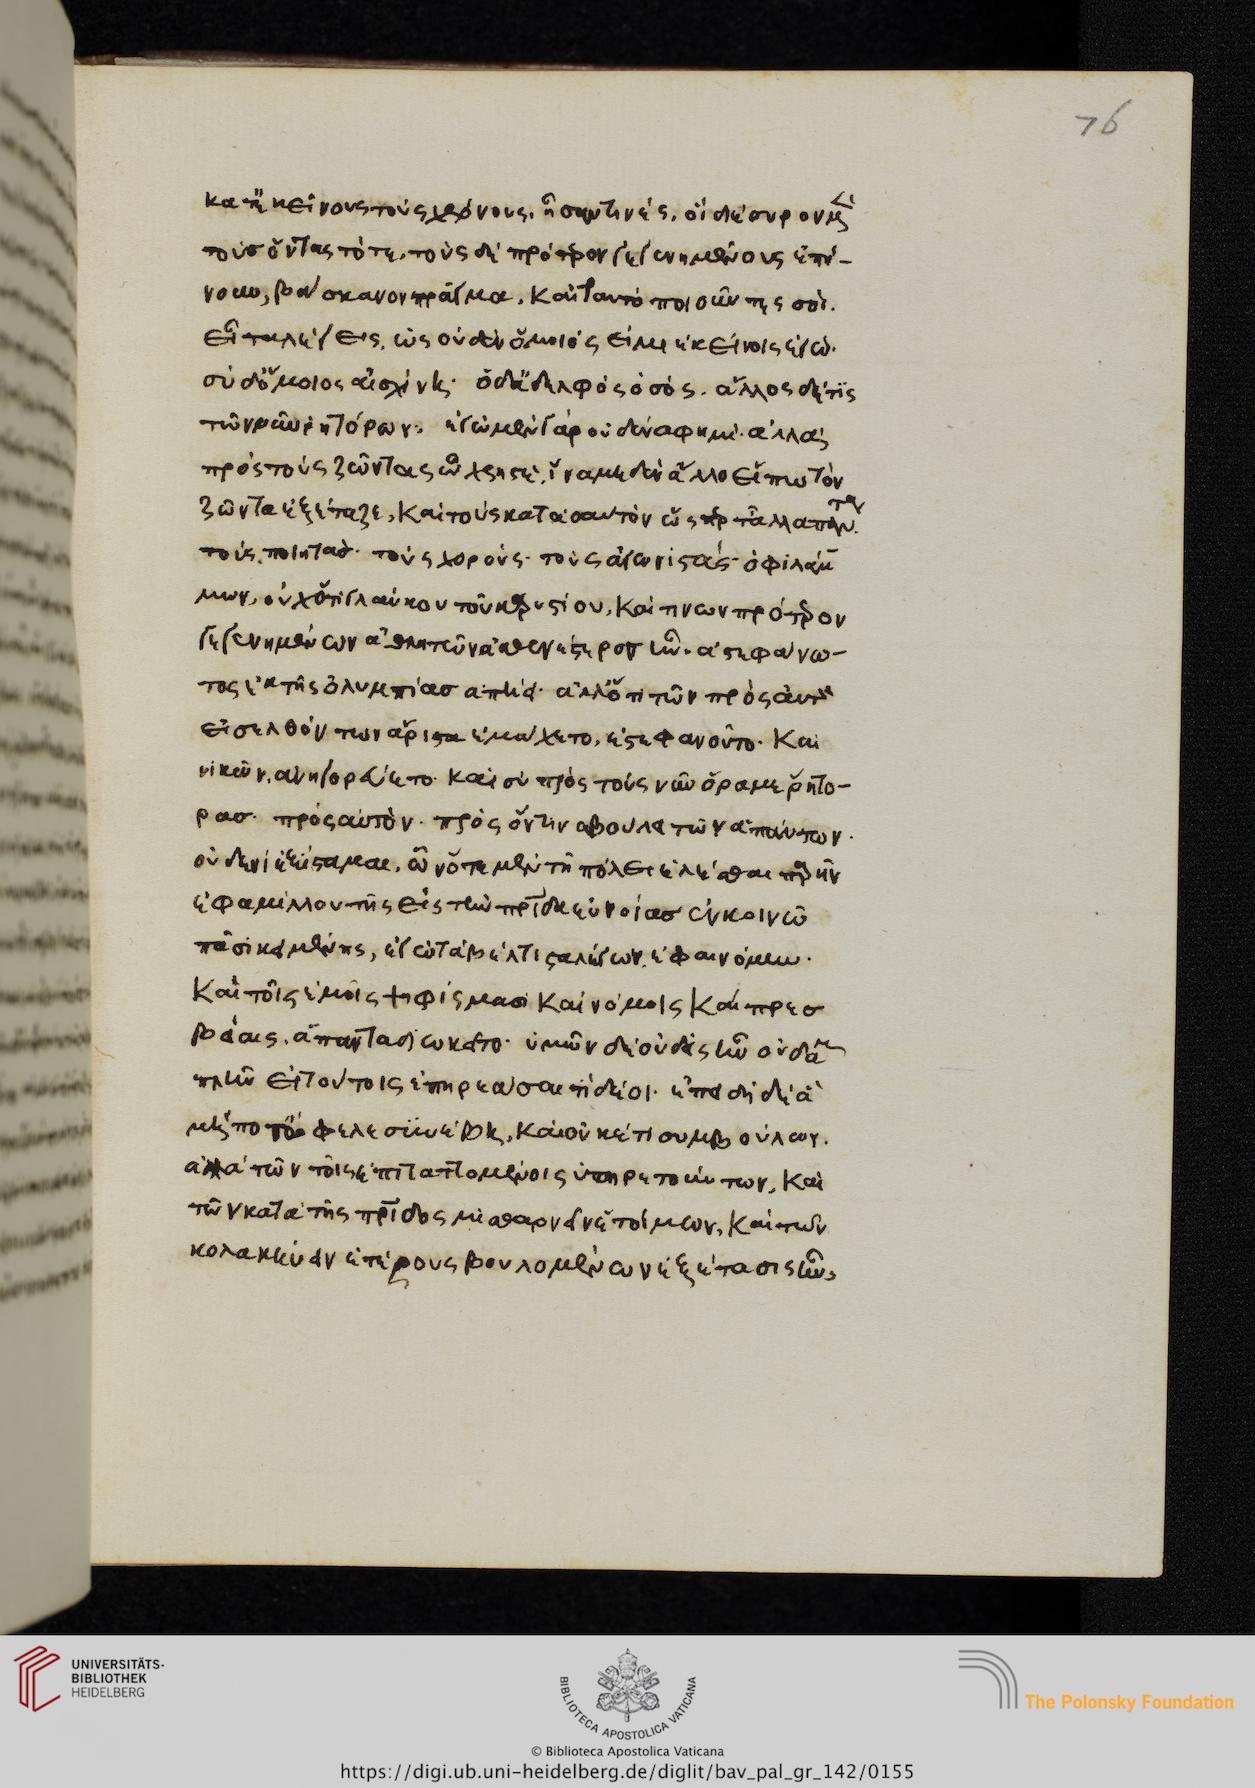 76
κατ' ἐκείνους τοὺς χρόνους, ἦσάν τινες, οἳ διέσυρον μὲν
τοὺς ὄντας τότε, τοὺς δὲ πρότερον γεγενημένους ἐπή-
νουν, βάσκανον πρᾶγμα, καὶ ταυτὸ ποιοῦντες σοί.
εἶτα λέγεις, ὡς οὐδὲν ὅμοιός εἰμι ἐκείνοις ἐγώ.
σὺ δ' ὅμοιος αἰσχίνη· ὁ δ' ἀδελφὸς ὁ σός. ἄλλος δέ τις
τῶν νῦν ῥητόρων; ἐγὼ μὲν γὰρ οὐδένα φημί. ἀλλὰ
πρὸς τοὺς ζῶντας ὦ χρηστέ, ἵνα μηδὲν ἄλλο εἴπω τὸν
ζῶντα ἐξέταζε, καὶ τοὺς κατὰ σαυτὸν ὥσπερ τἄλλα πάντα
τοὺς ποιητάς· τοὺς χορούς· τοὺς ἀγωνιστάς· ὁ φιλάμ-
μων, οὐχ ὅτι γλαύκου τοῦ καρυστίου, καί τινων πρότερον
γεγενημένων ἀθλητῶν ἀσθενέστερος ἦν. ἀστεφάνω-
τος ἐκ τῆς ὀλυμπίας ἀπῄει· ἀλλ' ὅτι τῶν πρὸς αὐτὸν
εἰσελθόντων ἄριστα ἐμάχετο, ἐστεφανοῦτο. καὶ
νικῶν, ἀνηγορεύετο. καὶ σὺ πρὸς τοὺς νῦν ὅρα με ῥήτο-
ρας· πρὸς αὑτόν· πρὸς ὅντινα βούλει τῶν ἁπάντων.
οὐδενὶ ἐξίσταμαι, ὧν ὅτε μὲν τῇ πόλει ἑλέσθαι παρῆν
ἐφαμίλλου τῆς εἰς τὴν πατρίδα εὐνοίας ἐν κοινῷ
πᾶσι κειμένης, ἐγὼ τὰ βέλτιστα λέγων ἐφαινόμην.
καὶ τοῖς ἐμοῖς ψηφίσμασι καὶ νόμοις καὶ πρεσ
βείαις, ἅπαντα διῳκεῖτο. ὑμῶν δὲ οὐδεὶς ἦν οὐδαμοῦ
πλὴν εἰ τούτοις ἐπηρεάσαι τι δέοι. ἐπειδὴ δὲ ἃ
μή ποτ' ὤφελε συνέβη, καὶ οὐκέτι συμβούλων.
ἀλλὰ τῶν τοῖς ἐπιταττομένοις ὑπηρετούντων, καὶ
τῶν κατὰ τῆς πατρίδος μισθαρνεῖν ἑτοίμων, καὶ τῶν
κολακεύειν ἑτέρους βουλομένων ἐξέτασις ἦν,
UNIVERSITÄTS-
BIBLIOTHEK
HEIDELBERG
BIBLIOTECA APOSTOLICA VATICANA
The Polonsky Foundation
© Biblioteca Apostolica Vaticana
https://digi.ub.uni-heidelberg.de/diglit/bav_pal_gr_142/0155